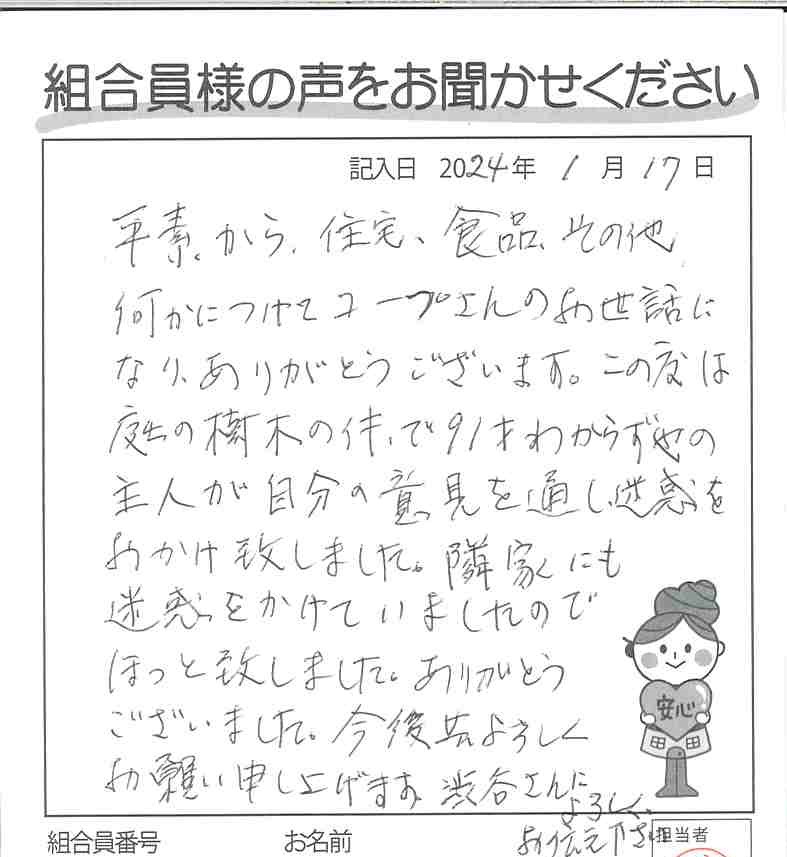 組合員様の声をお聞かせください
記入日 2024年 1月 17日
平素から、住宅、食品、その他
何かにつけてコープさんのお世話に
なり、ありがとうございます。この度は
庭の樹木の件で91才わからずやの
主人が自分の意見を通し迷惑を
おかけ致しました。隣家にも
迷惑をかけていましたので
ほっと致しました。ありがとう
ございました。今後共よろしく
お願い申し上げます。渋谷さんに
よろしく、
お伝え下さい
安心
組合員番号 お名前 担当者